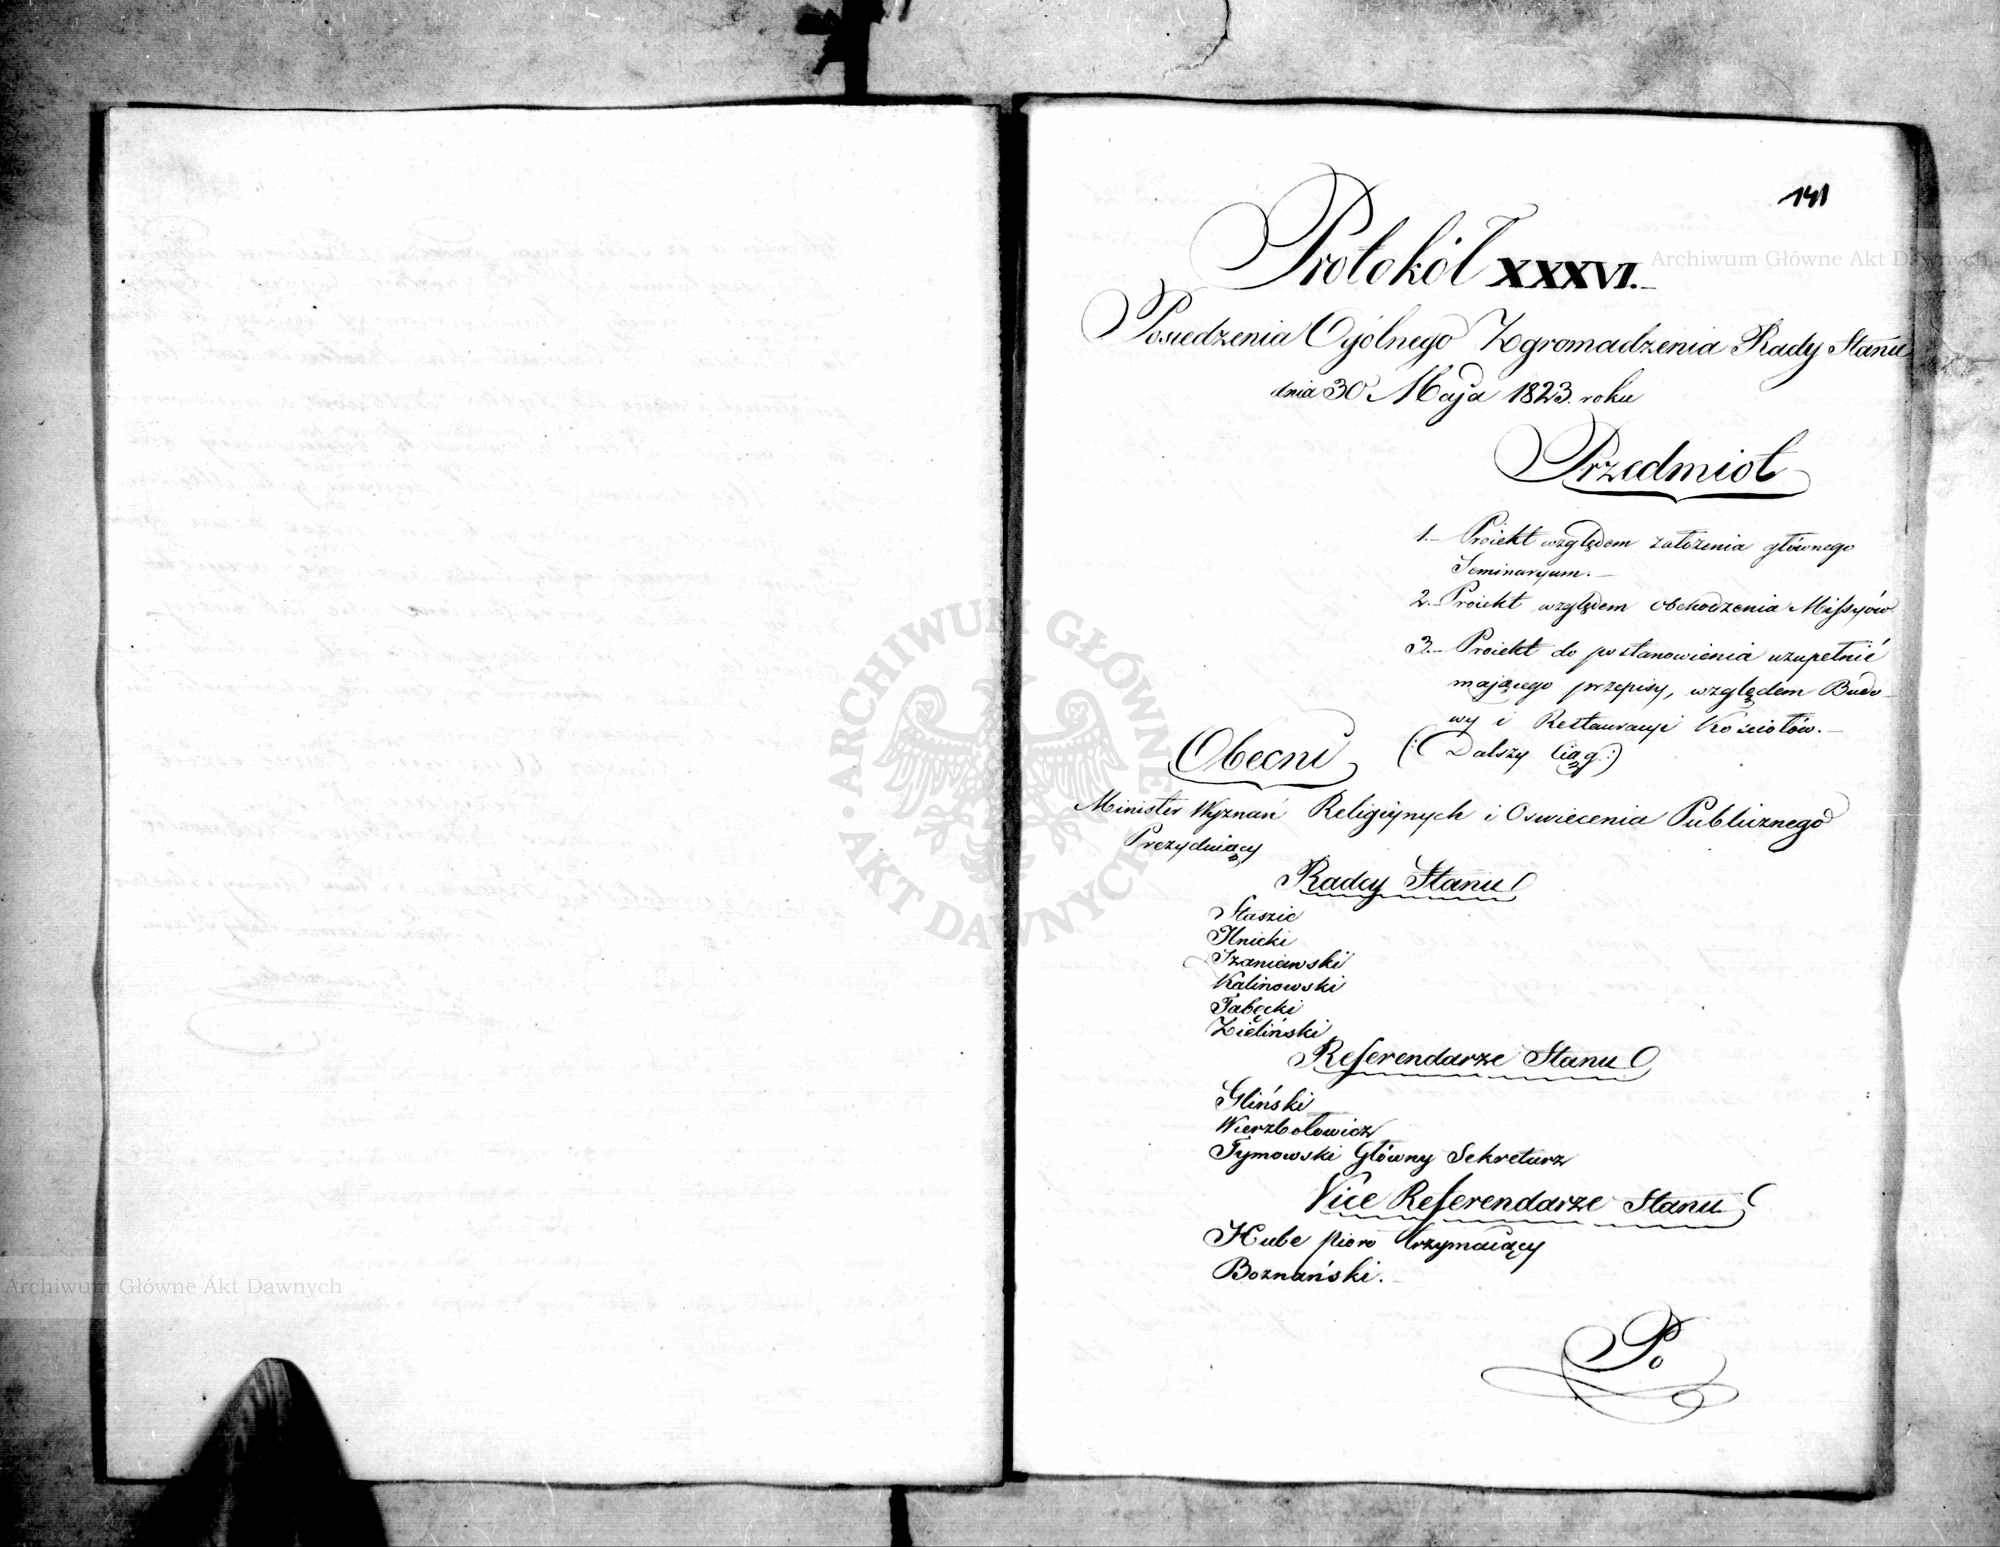 141
Protokół XXXVI.
Posiedzenia Ogólnego Zgromadzenia Rady Stanu
dnia 30 Maja 1823. roku
Przedmiot
1. Proiekt względem założenia głównego
Seminaryum.
2. Proiekt względem obchodzenia Missyów
3. Proiekt do postanowienia uzupełnić
mającego przepisy, względem Budo-
wy i Restauracyi Kościołów.
(: Dalszy Ciąg :)
Obecni
Minister Wyznań Religiynych i Oswiecenia Publicznego
Prezyduiący
Radcy Stanu
Staszic
Ilnicki
Szaniawski
Kalinowski
Tabęcki
Zieliński
Referendarze Stanu
Gliński
Wierzbołowicz
Tymowski Główny Sekretarz
Vice Referendarze Stanu
Hube pioro trzymaiący
Boznański.
Po
ARCHIWUM GŁÓWNE AKT DAWNYCH
Archiwum Główne Akt Dawnych
Archiwum Główne Akt Dawnych